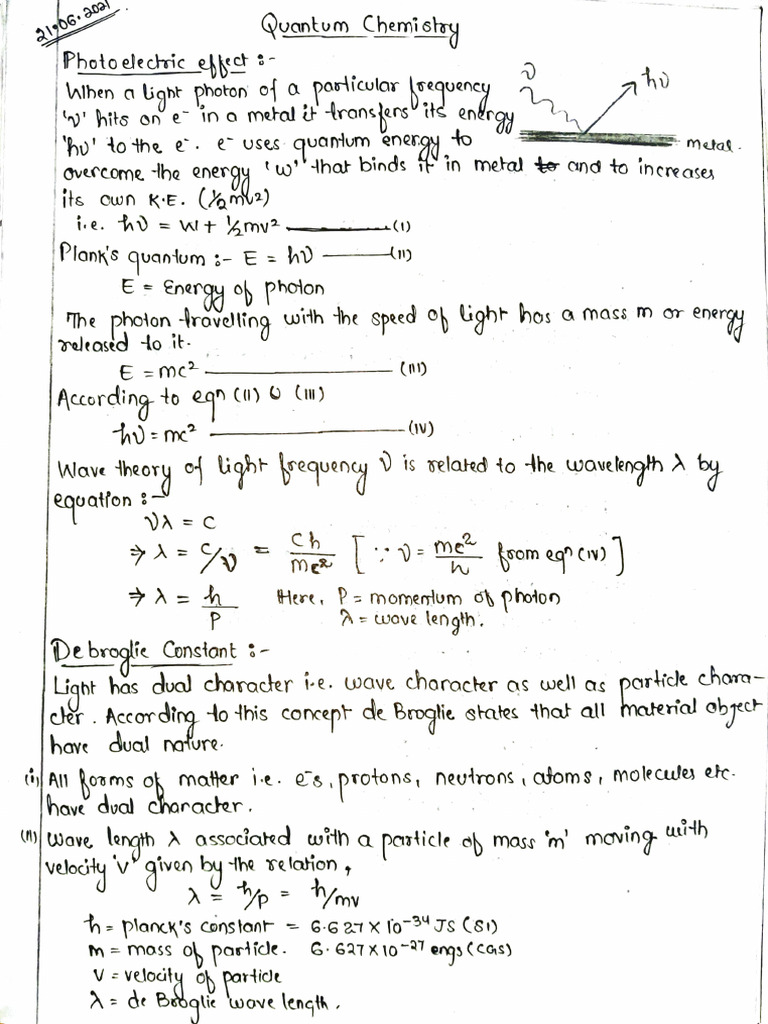 21.06.2021
Quantum Chemistry
Photoelectric effect :-
When a light photon of a particular frequency
'ν' hits on e⁻ in a metal it transfers its energy
'hν' to the e⁻. e⁻ uses quantum energy to
overcome the energy 'w' that binds it in metal to and to increases
its own K.E. (½mv²)
ν
hν
metal.
i.e. hν = W + ½mv² ———(I)
Plank's quantum :- E = hν ———(II)
E = Energy of photon
The photon travelling with the speed of light has a mass m or energy
released to it.
E = mc² ———(III)
According to eqn (II) & (III)
hν = mc² ———(IV)
Wave theory of light frequency ν is related to the wavelength λ by
equation :-
νλ = c
⇒ λ = c/ν = ch/mc² [∵ ν = mc²/h from eqn (IV)]
⇒ λ = h/P Here, P = momentum of photon
λ = wave length.
De broglie Constant :-
Light has dual character i.e. wave character as well as particle chara-
cter. According to this concept de Broglie states that all material object
have dual nature.
(i) All forms of matter i.e. e⁻s, protons, neutrons, atoms, molecules etc.
have dual character.
(II) Wave length λ associated with a particle of mass 'm' moving with
velocity 'v' given by the relation,
λ = h/p = h/mv
h = planck's constant = 6.627 × 10⁻³⁴ JS (SI)
m = mass of particle. 6.627 × 10⁻²⁷ engs (CGS)
V = velocity of particle
λ = de Broglie wave length.